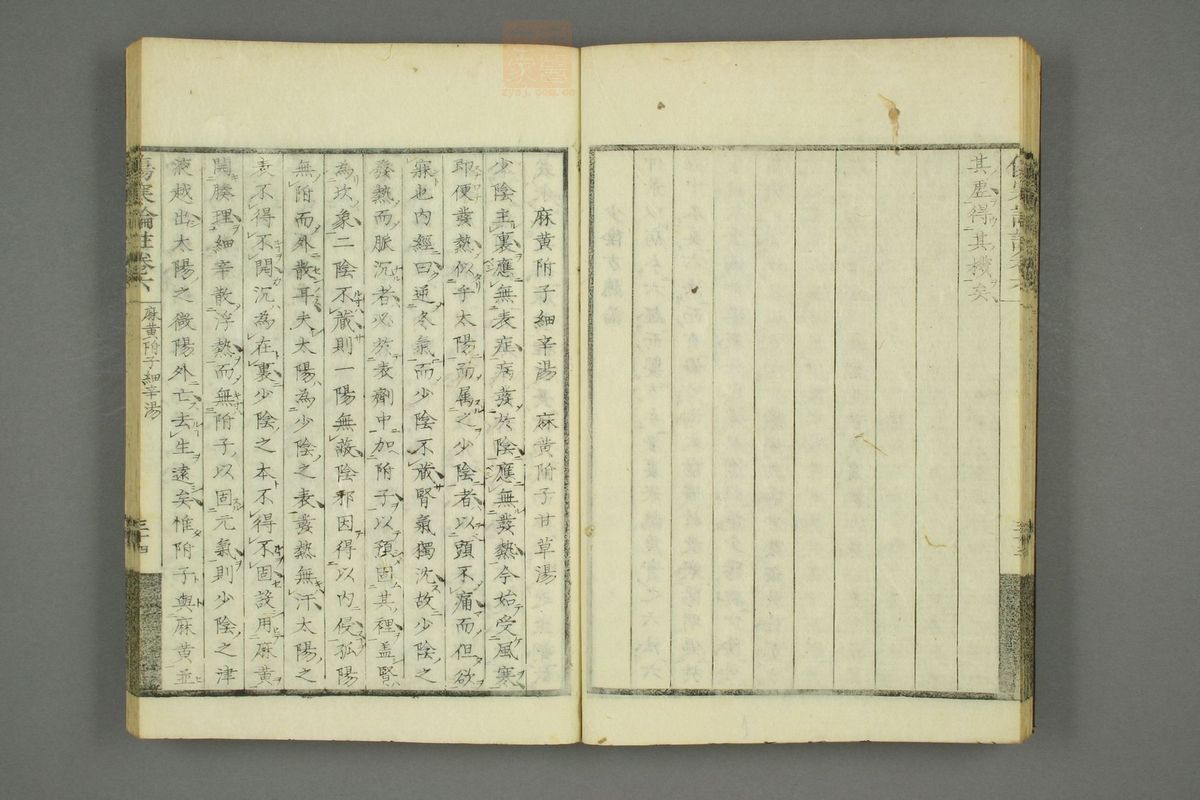 其虛得其機矣
麻黃附子細辛湯　麻黃附子甘草湯
少陰主裏應無表症病發於陰應無發熱今始受風寒
即便發熱似乎太陽而属之少陰者以頭不痛而但欲
寐也内經曰逆冬氣而少陰不藏腎氣獨沈故少陰之
發熱而脈沉者必於表劑中加附子以預固其裡盖腎
為坎象二陰不藏則一陽無蔽陰邪因得以内侵孤陽
無附而外散耳夫太陽為少陰之表發熱無汗太陽之
表不得不開沉為在裏少陰之本不得不固設用麻黃
開腠理細辛散浮熱而無附子以固元氣則少陰之津
液越出太陽之微陽外亡去生遠矣惟附子與麻黃並
傷寒論註卷六
麻黃附子細辛湯
三十四